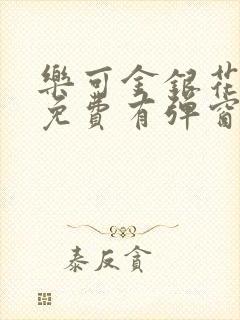 樂可金銀花
免費有彈窗
泰反貪